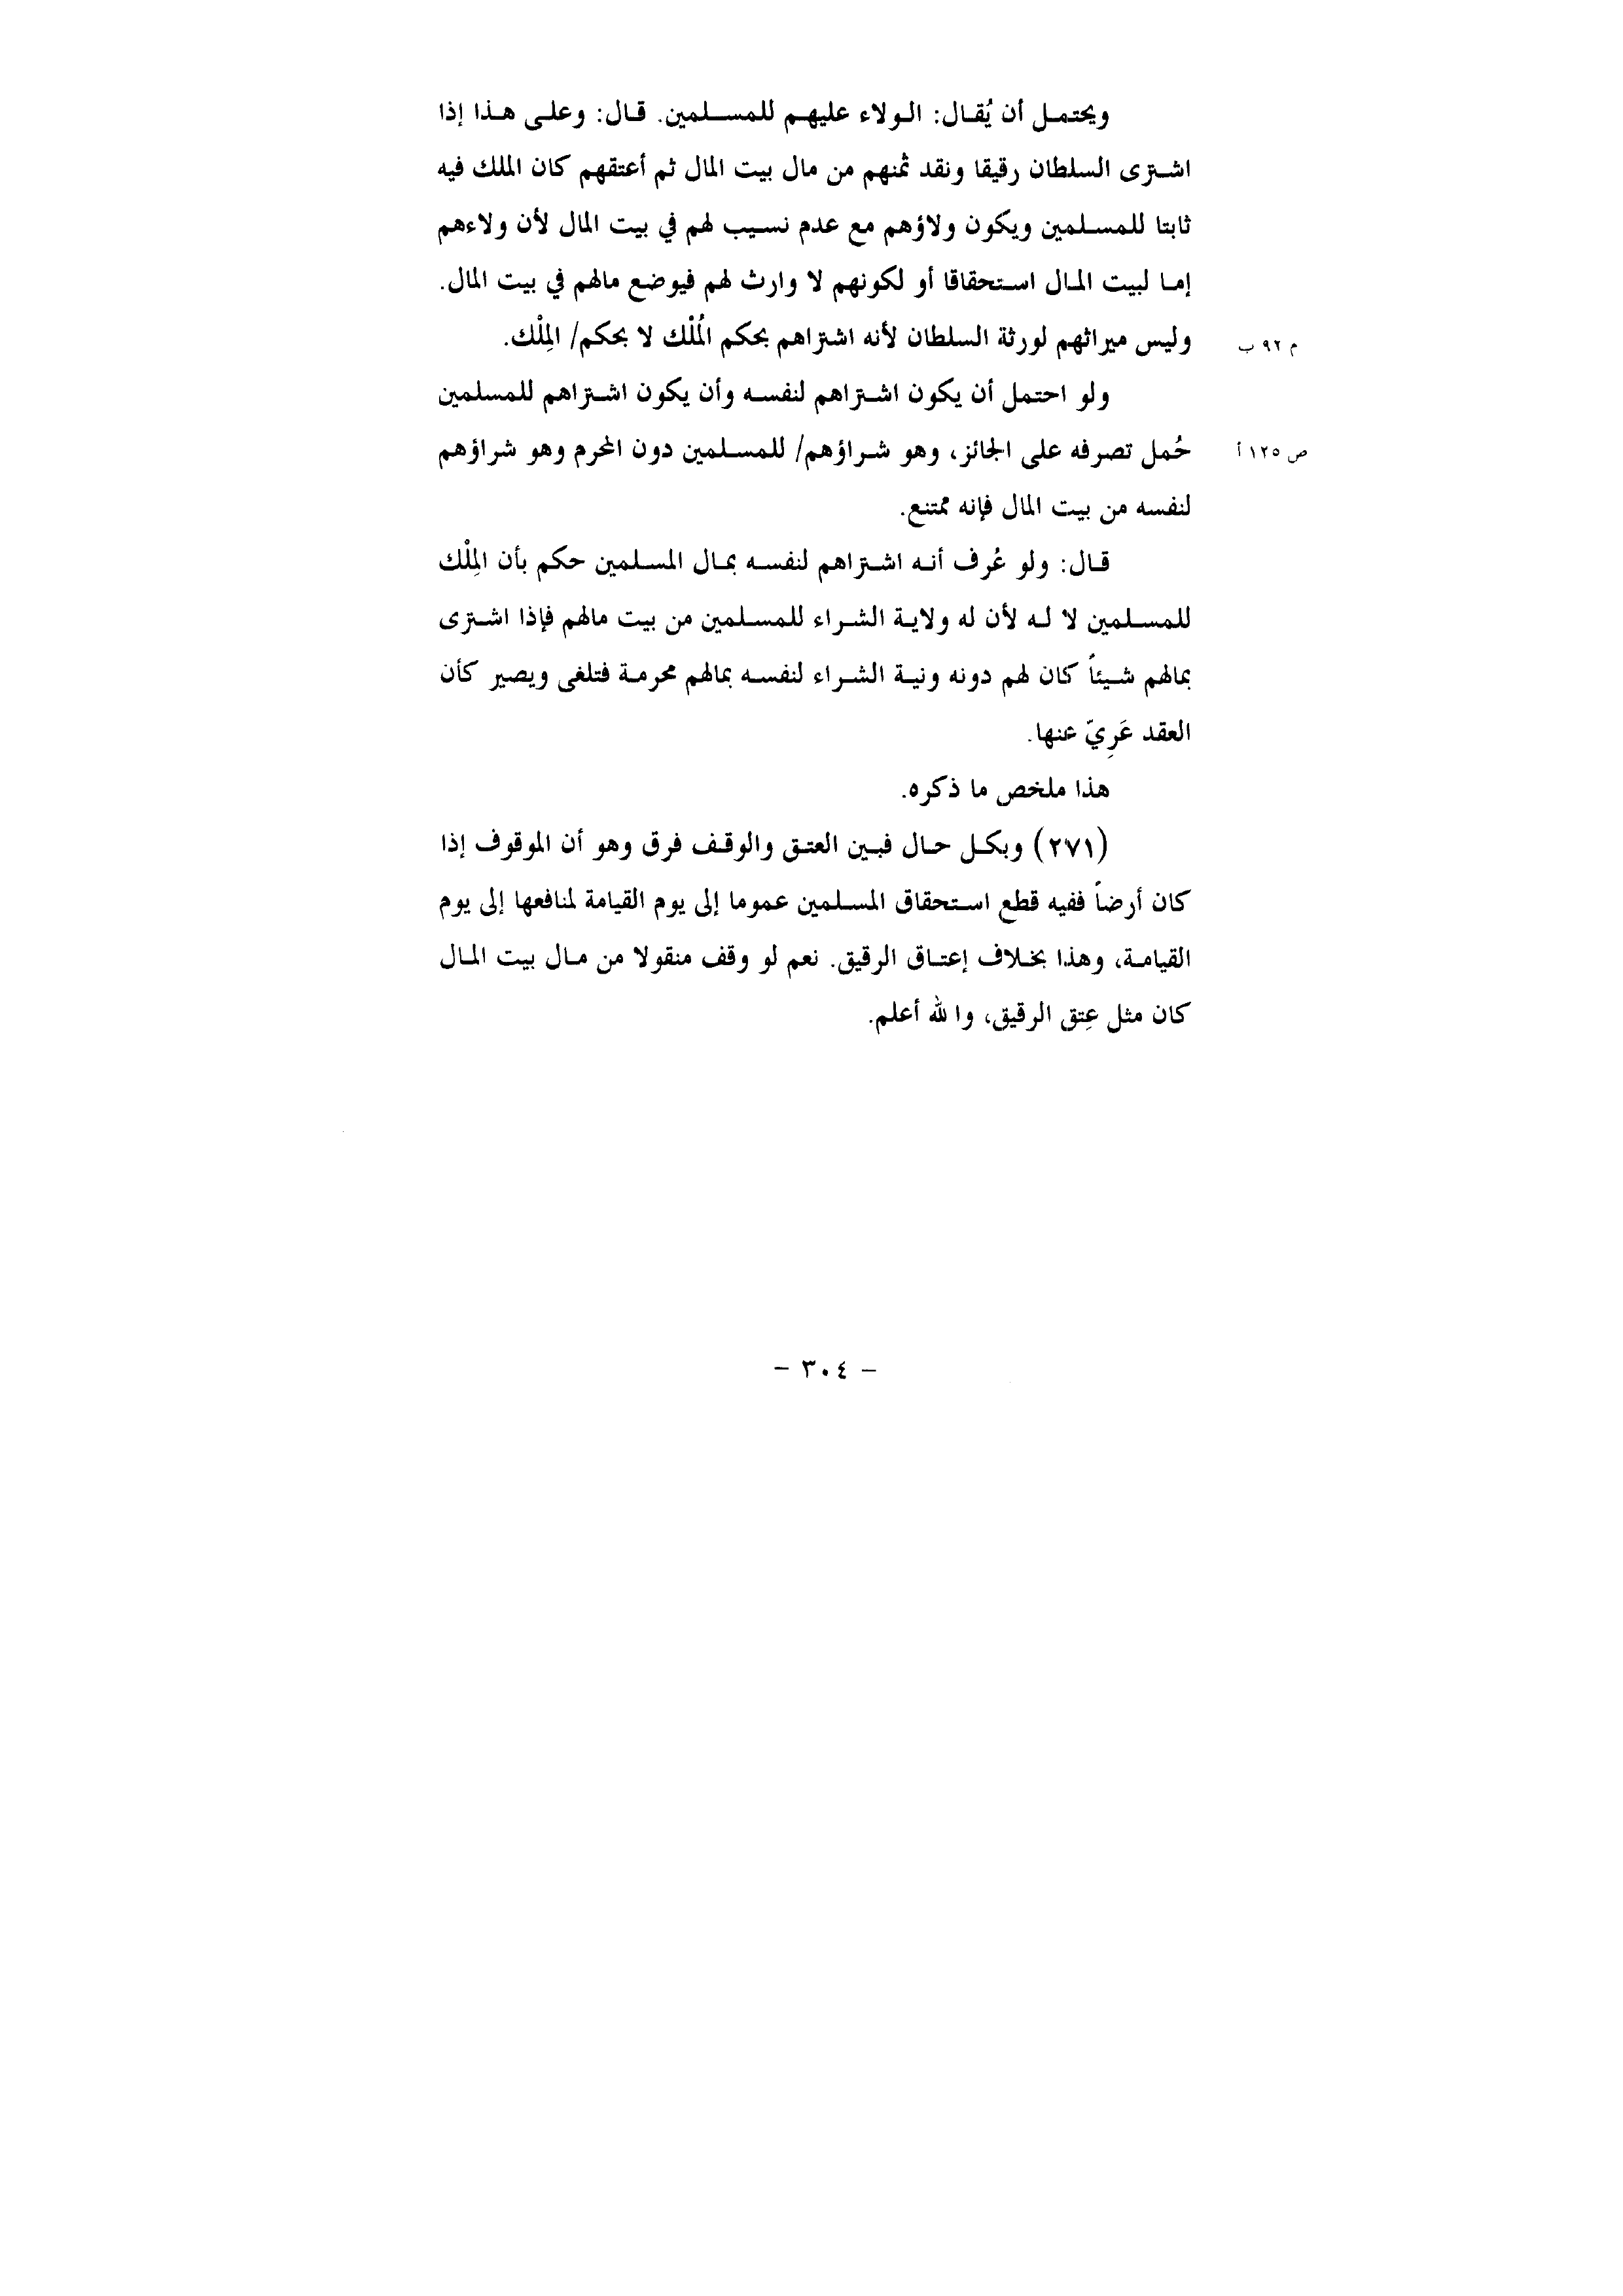 ويحتمل أن يُقال: الولاء عليهم للمسلمين. قال: وعلى هذا إذا
اشترى السلطان رقيقا ونقد ثمنهم من مال بيت المال ثم أعتقهم كان الملك فيه
ثابتا للمسلمين ويكون ولاؤهم مع عدم نسيب لهم في بيت المال لأن ولاءهم
إما لبيت المال استحقاقا أو لكونهم لا وارث لهم فيوضع مالهم في بيت المال.
وليس ميراثهم لورثة السلطان لأنه اشتراهم بحكم المُلْك لا بحكم/ المِلْك.
م ٩٢ ب
ولو احتمل أن يكون اشتراهم لنفسه وأن يكون اشتراهم للمسلمين
حُمل تصرفه على الجائز، وهو شراؤهم/ للمسلمين دون المحرم وهو شراؤهم
ص ١٢٥ أ
لنفسه من بيت المال فإنه ممتنع.
قال: ولو عُرف أنه اشتراهم لنفسه بمال المسلمين حكم بأن المِلْك
للمسلمين لا له لأن له ولاية الشراء للمسلمين من بيت مالهم فإذا اشترى
بمالهم شيئاً كان لهم دونه ونية الشراء لنفسه بمالهم محرمة فتلغى ويصير كأن
العقد عَرِيّ عنها.
هذا ملخص ما ذكره.
(٢٧١) وبكل حال فبين العتق والوقف فرق وهو أن الموقوف إذا
كان أرضاً ففيه قطع استحقاق المسلمين عموما إلى يوم القيامة لمنافعها إلى يوم
القيامة، وهذا بخلاف إعتاق الرقيق. نعم لو وقف منقولا من مال بيت المال
كان مثل عِتق الرقيق، والله أعلم.
– ٣٠٤ –